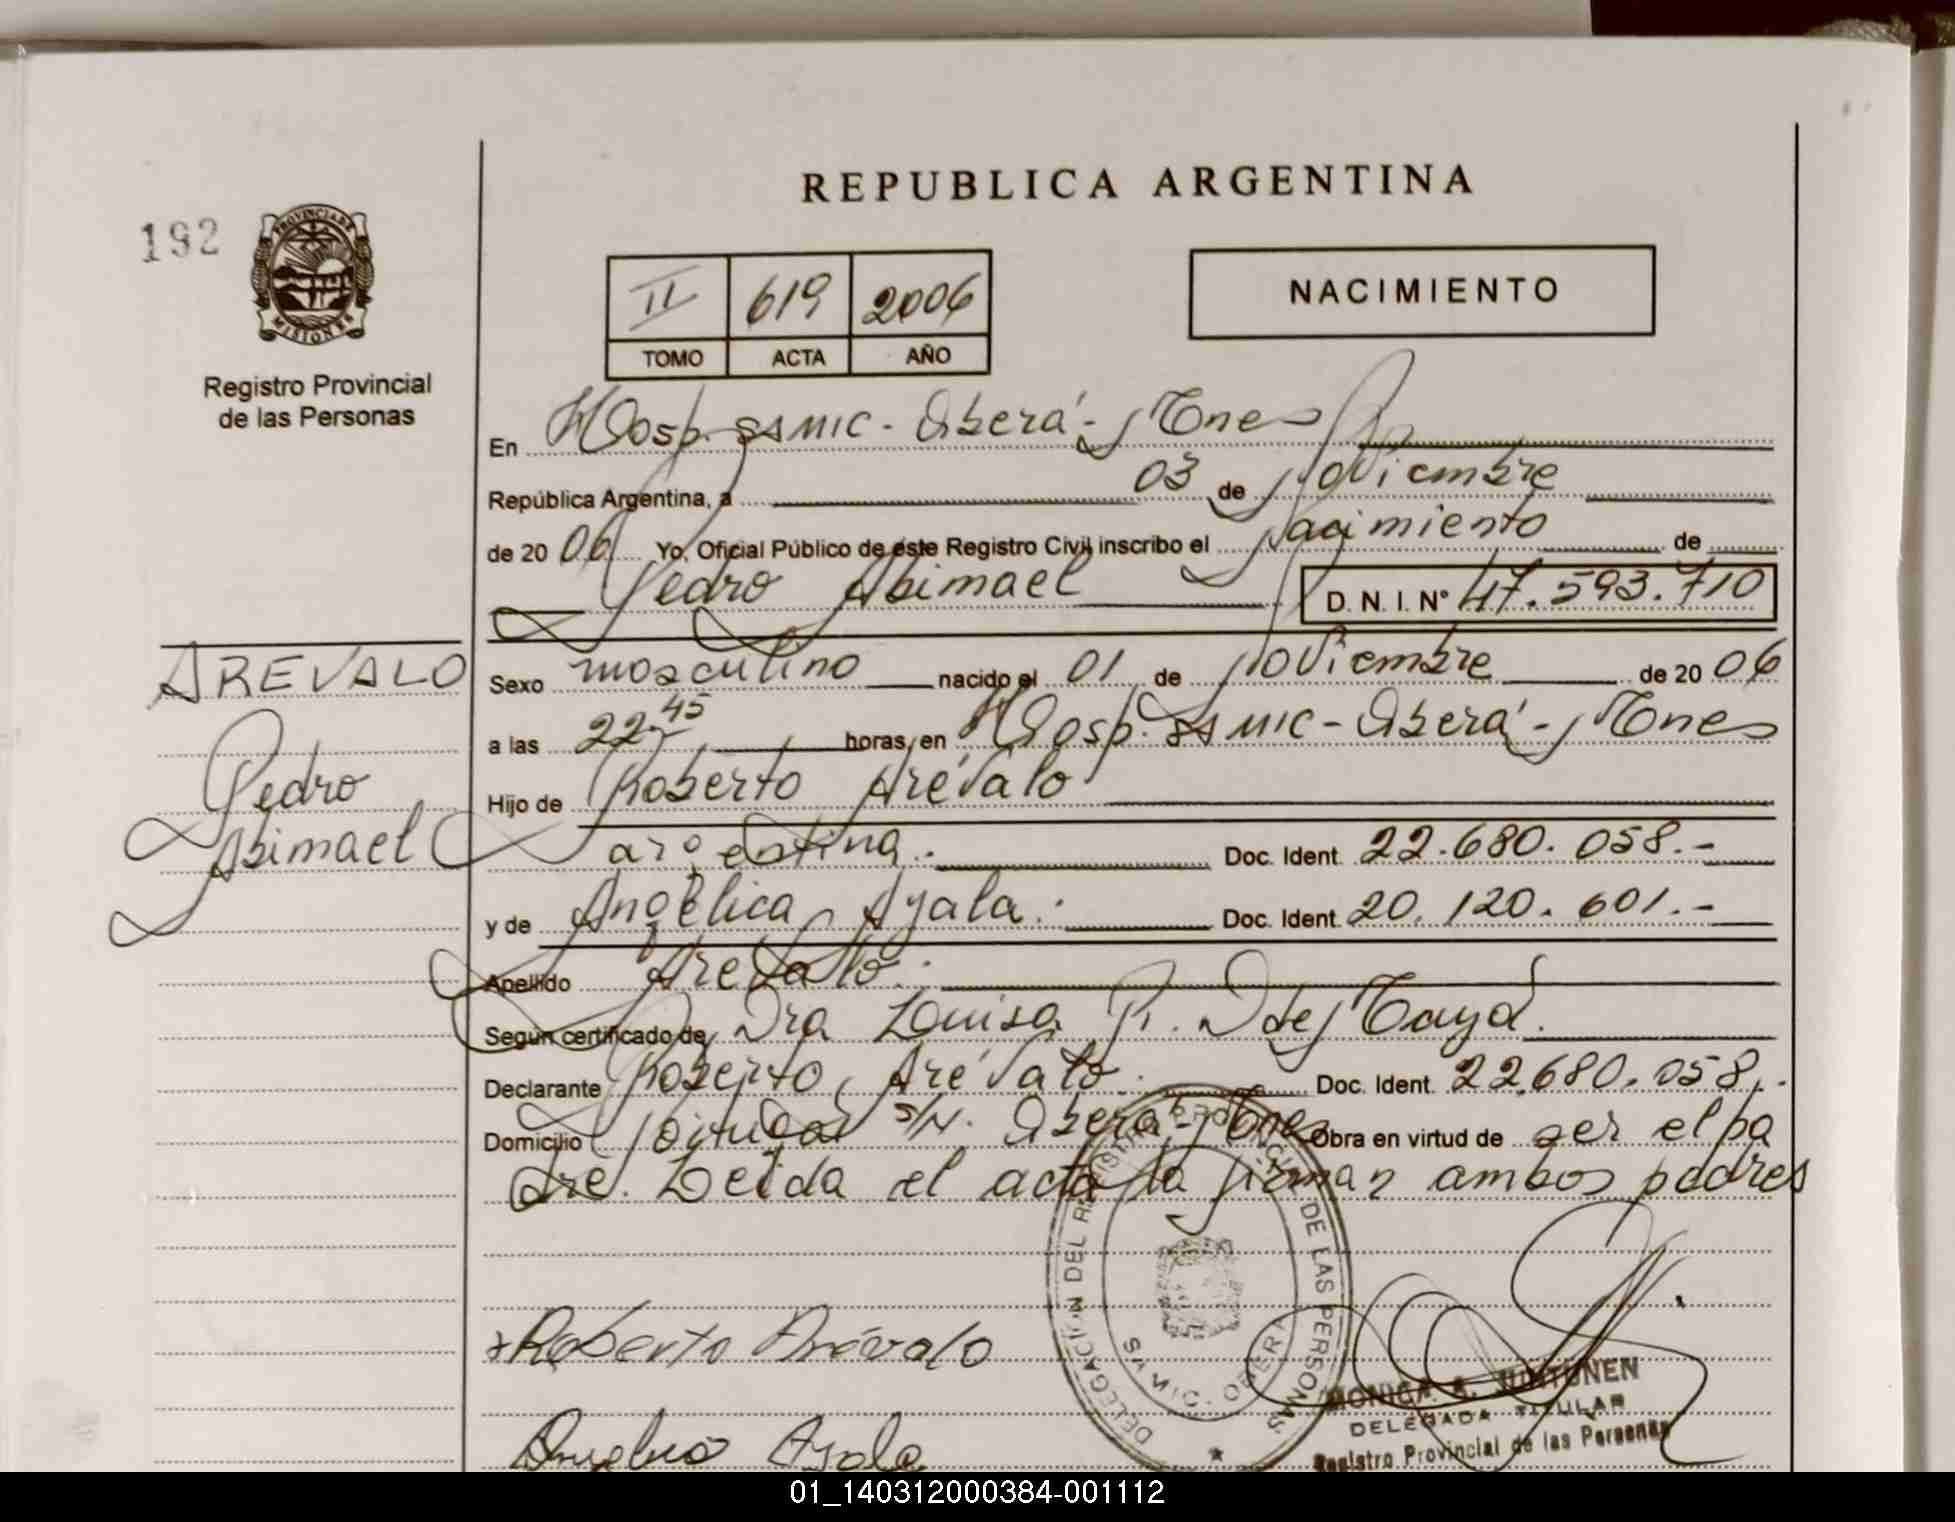 REPUBLICA ARGENTINA
192
PROVINCIA DE
MISIONES
Registro Provincial
de las Personas
II 619 2006
TOMO ACTA AÑO
NACIMIENTO
En Hosp. SAMIC - Oberá - Mnes
República Argentina, a 03 de Noviembre
de 2006 Yo, Oficial Público de este Registro Civil inscribo el Nacimiento de
Pedro Abimael D. N. I. N° 47.593.710
AREVALO
Pedro
Abimael
Sexo masculino nacido el 01 de Noviembre de 2006
a las 22,45 horas, en Hosp. SAMIC - Oberá - Mnes
Hijo de Roberto Arévalo
argentina.- Doc. Ident. 22.680.058.-
y de Angélica Ayala.- Doc. Ident. 20.120.601.-
Apellido Arevalo.-
Según certificado de Dra Louisa R.
Declarante Roberto Arévalo Doc. Ident. 22.680.058.-
Domicilio S/N. Oberá - Mnes Obra en virtud de ser el pa
dre. Leída el acta la firman ambos padres
Roberto Arévalo
Ayala
DELEGACION DEL REGISTRO PROVINCIAL DE LAS PERSONAS
SAMIC - OBERA
MONICA A.
DELEGADA TITULAR
Registro Provincial de las Personas
01_140312000384-001112